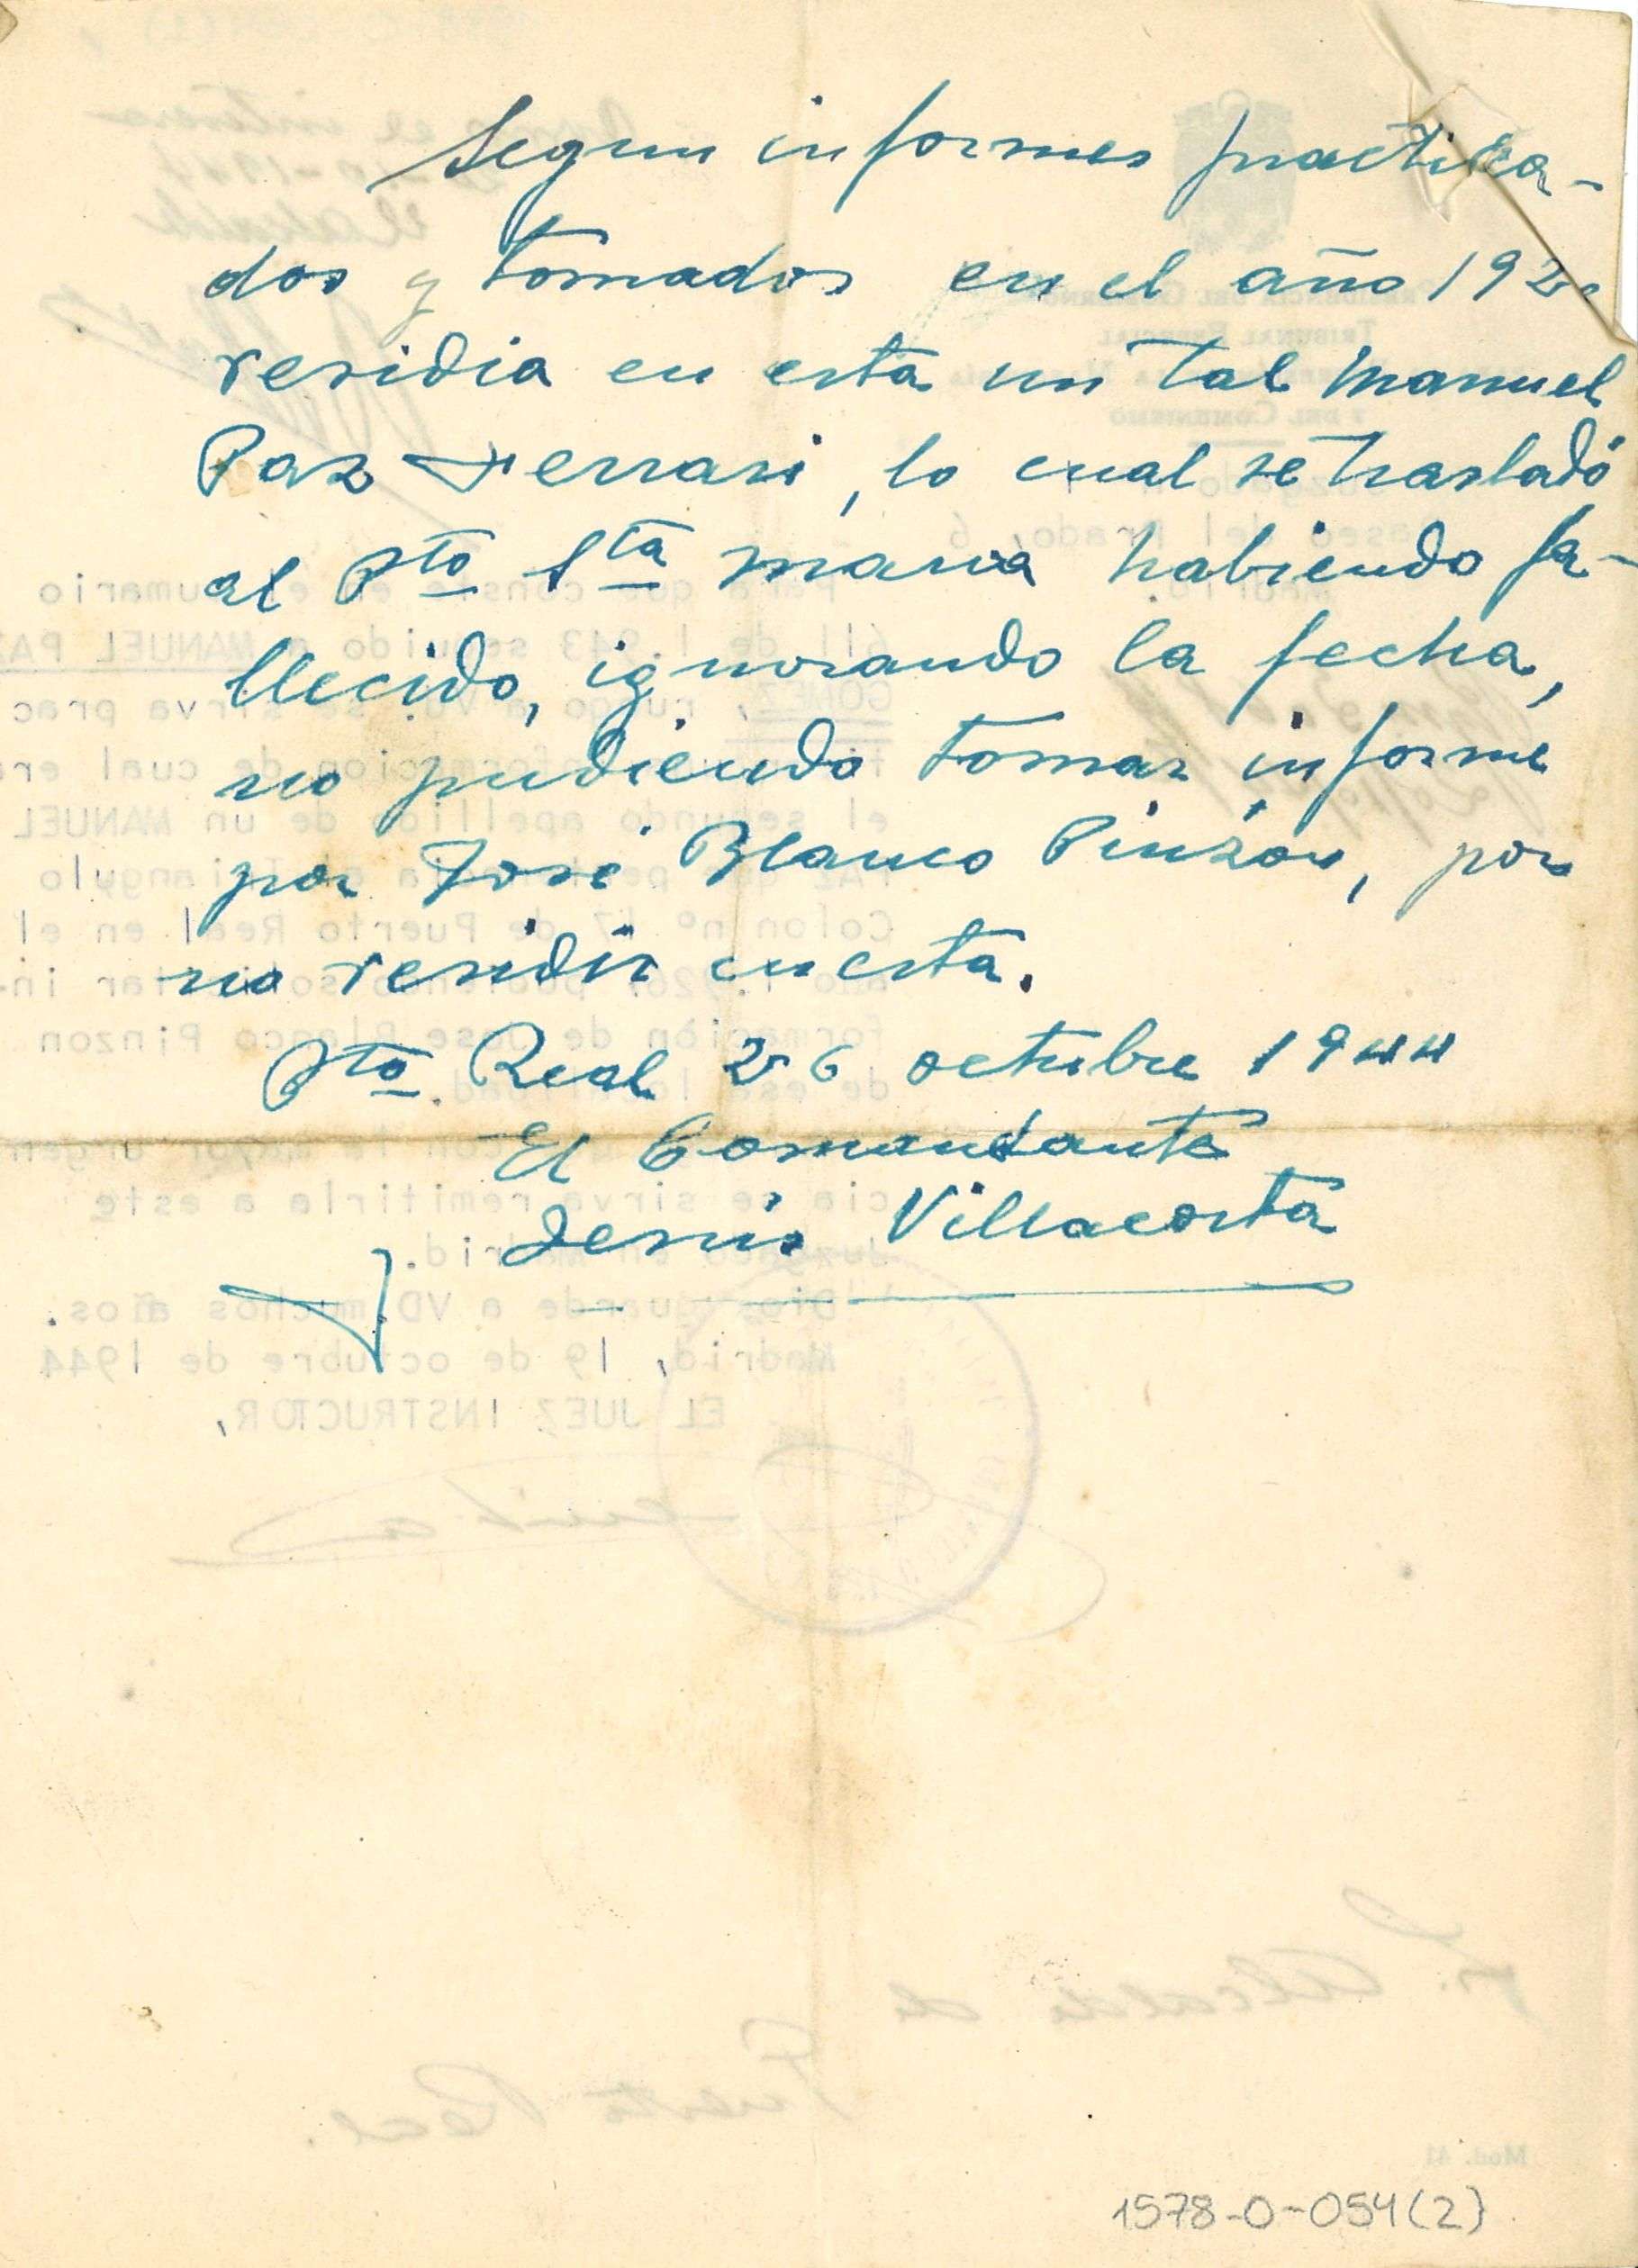 Segun informes practica-
dos y tomados en el año 192
residia en esta un tal Manuel
Paz Ferrari, lo cual se trasladó
al Pto Sta maria habiendo fa-
llecido, ignorando la fecha,
no pudiendo tomar informe
por José Blanco Pinzón, por
no residir en esta.
Pto Real 26 octubre 1944
El Comandante
Jesus Villacorta
1578-0-054(2)